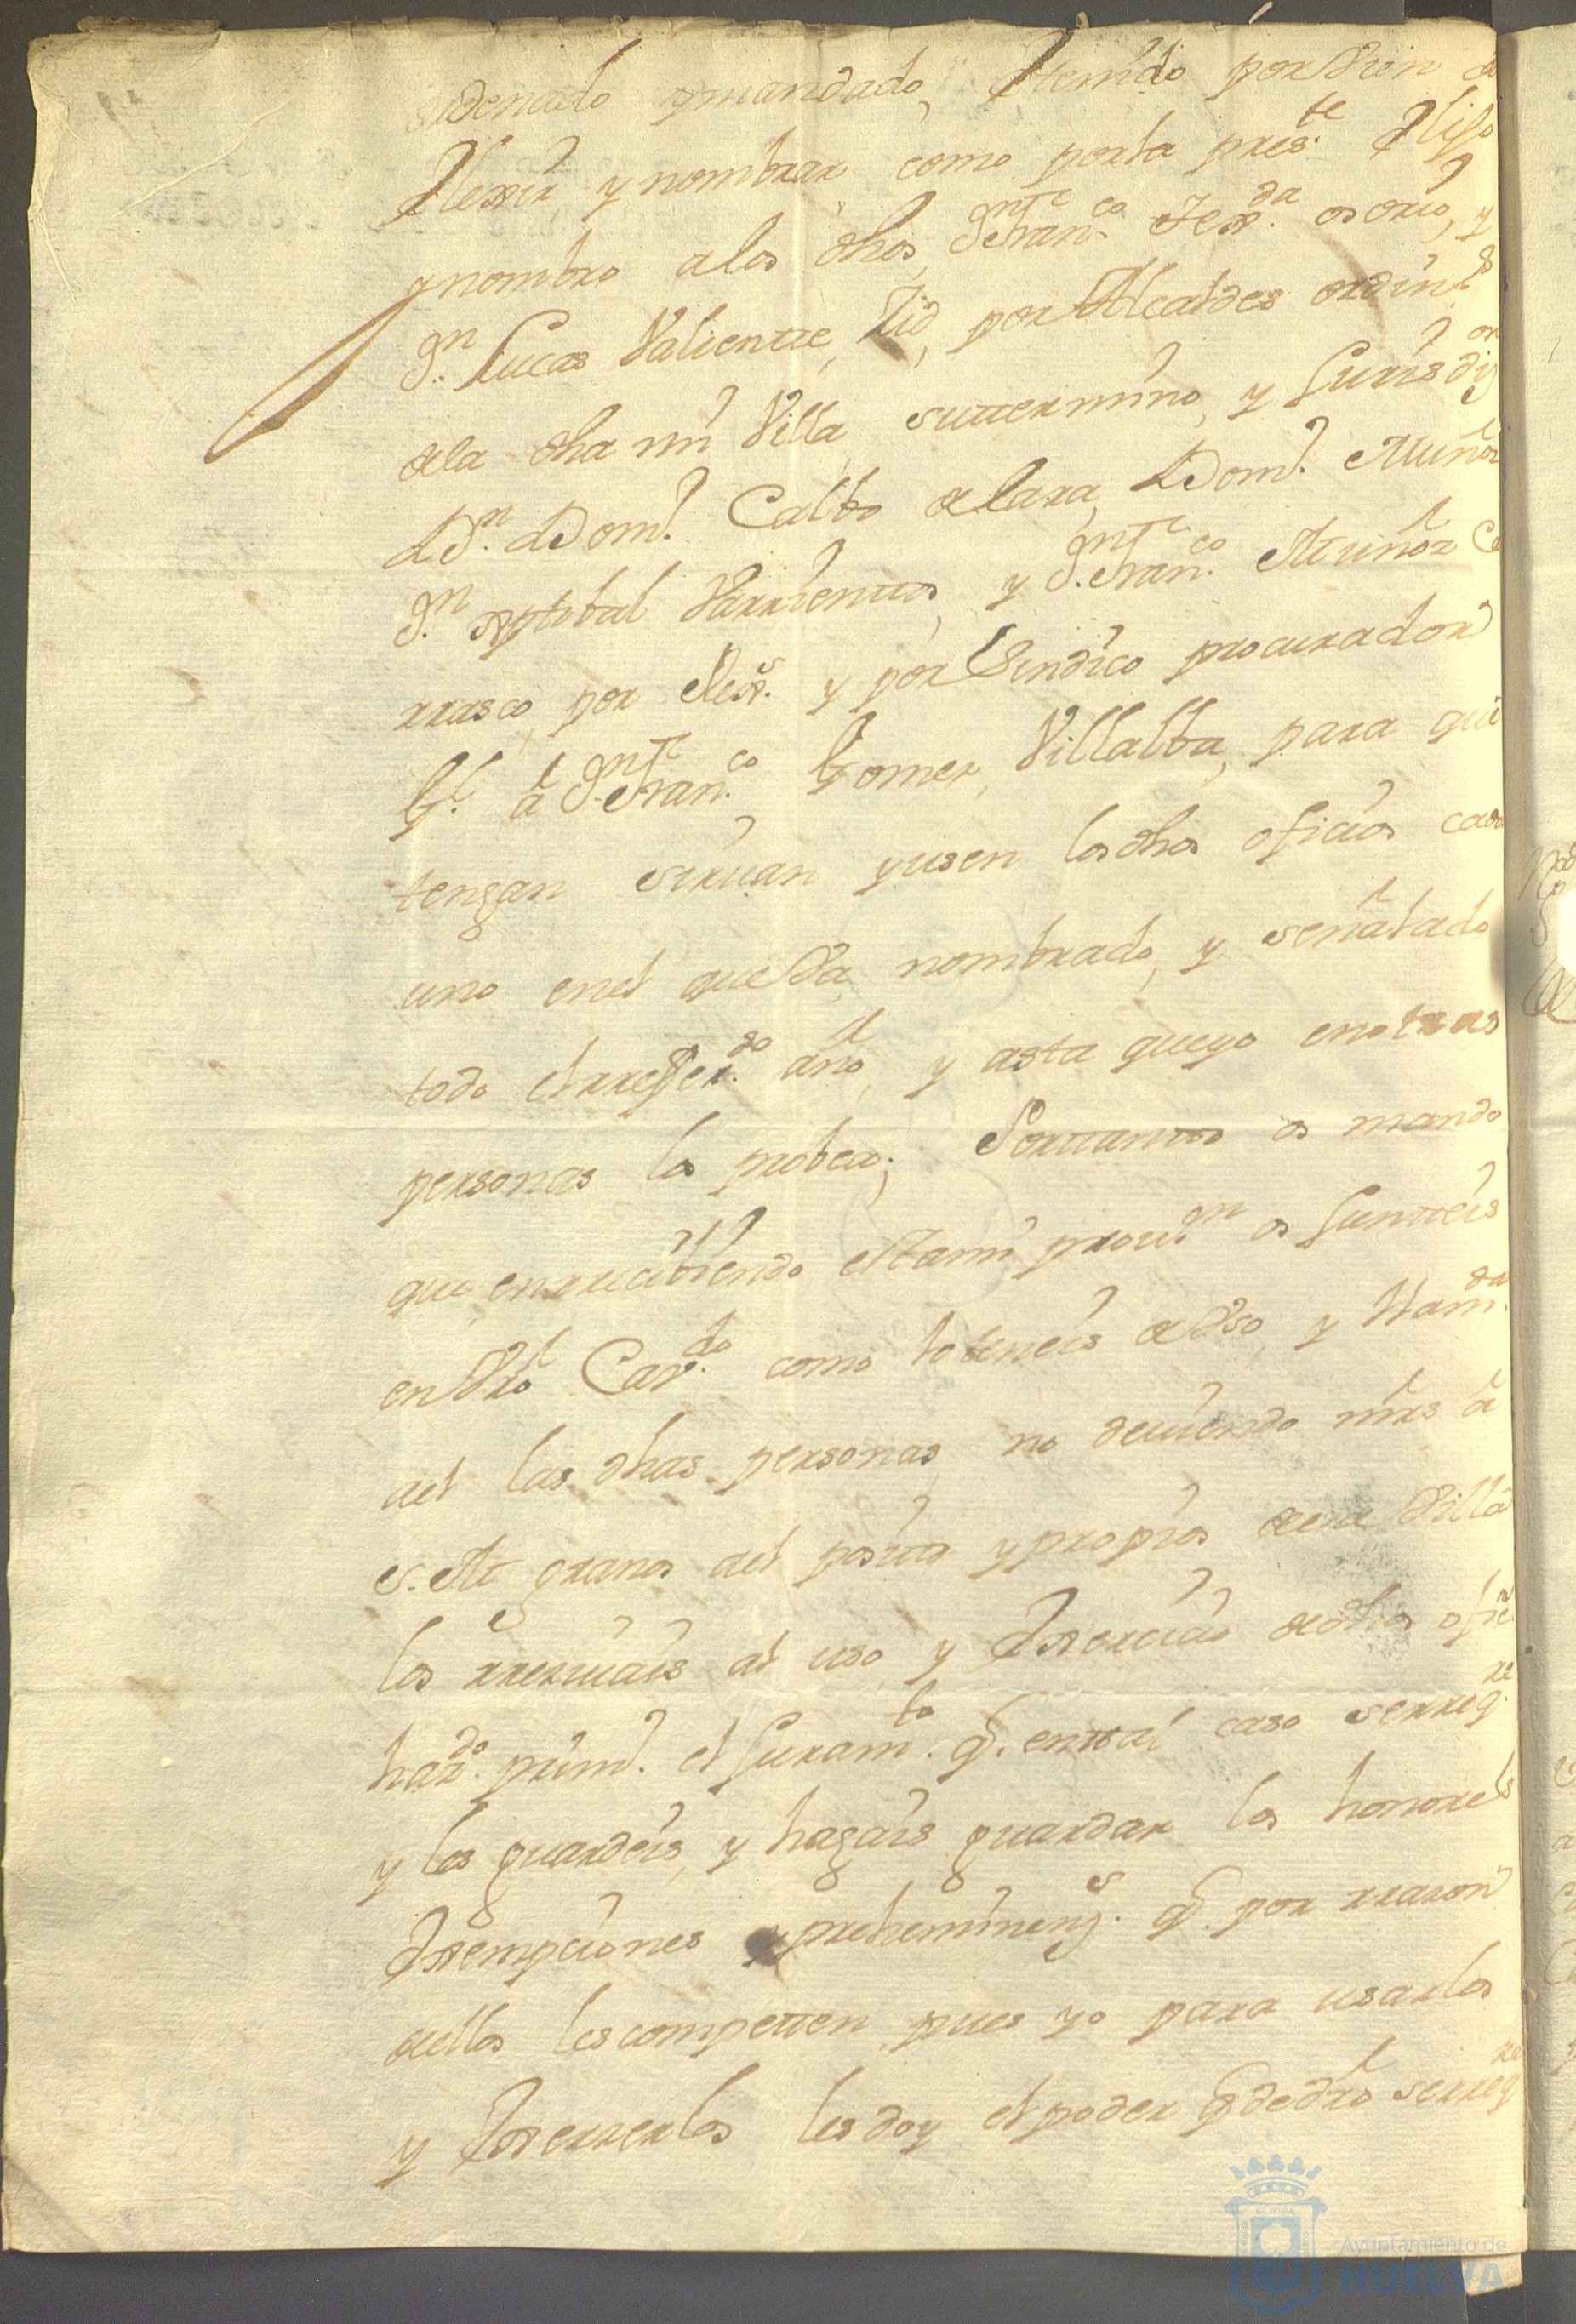 ordenado y mandado, Etenido por vien de
Elexir, y nombrar como por la press.te Elijo
y nombro a los dhos, Dn Fran.co Zer.da osorio, y
Dn. Lucas Valiente, Zid, por Alcaldes ordin.s
de la dha mi Villa, su ttermino, y Jurisdiz.on
Dn. Dom.o Calbo de lara, Dom.o Muñoz
Dn. Xptobal Varrientos, y Dn. Fran.co Muñoz Ca
rrasco, por Rex.s y por Sindico procurador
Gl. a Dn. Fran.co Gomez, Villalba, para que
tengan siruan y usen los dhos oficios cada
uno en el que va nombrado, y señalado
todo el rrefer.do año, y asta que yo en otras
personas los probea; Porttanto os mando
que en rreciuiendo esta mi prou.on os Junteis
en Vro Cav.do como lo teneis de Vso, y llam.da
a el las dhas personas, no deuiendo mrs a
S. M. granos del posito y propios de esa Villa
los rreziuais al uso, y Exercicio de dhos ofiz
haz.do prim.o el Juram.to q. en tal caso se rreq.re
y los guardeis, y hagais guardar los honores
Exempciones y preheminenz.s q. por rrazon
dellos les competten, pues yo para usarlos
y Exerzerlos les doy el poder q. de dro se rreq.re
Ayuntamiento de
HUELVA